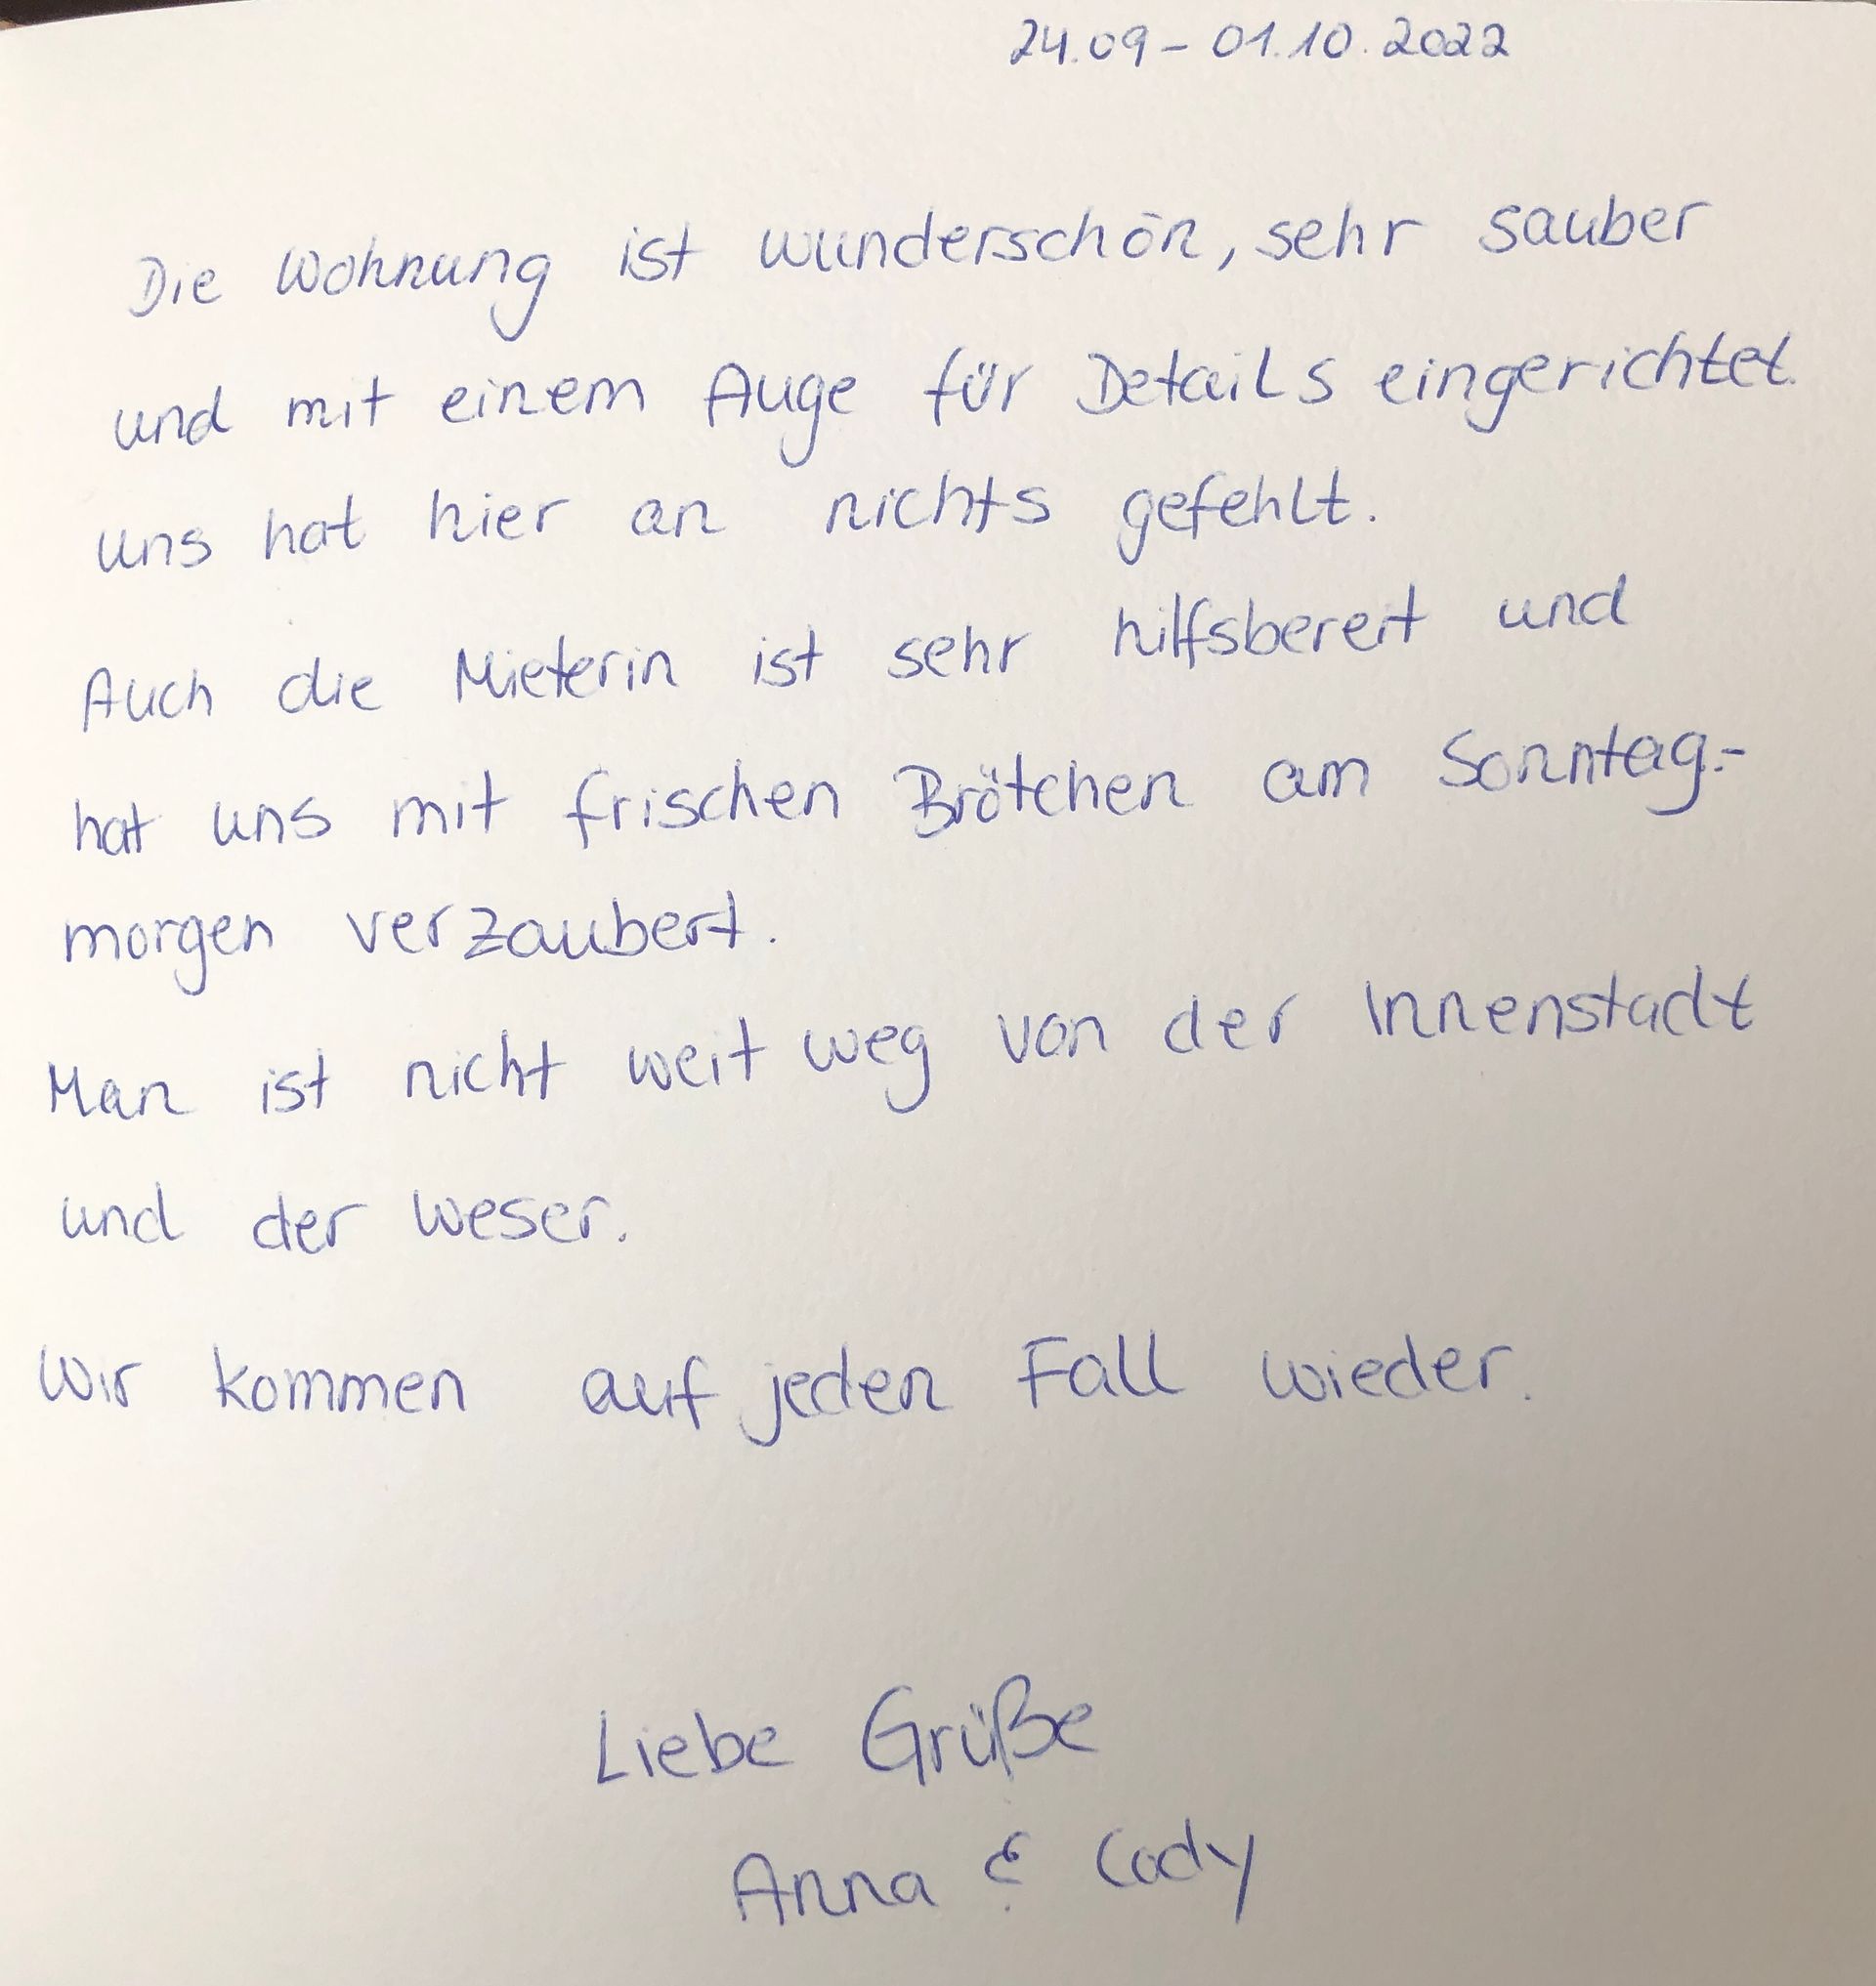 24.09 - 01.10.2022
Die Wohnung ist wunderschön, sehr sauber
und mit einem Auge für Details eingerichtet.
Uns hat hier an nichts gefehlt.
Auch die Mieterin ist sehr hilfsbereit und
hat uns mit frischen Brötchen am Sonntag-
morgen verzaubert.
Man ist nicht weit weg von der Innenstadt
und der Weser.
Wir kommen auf jeden Fall wieder.
Liebe Grüße
Anna & Cody